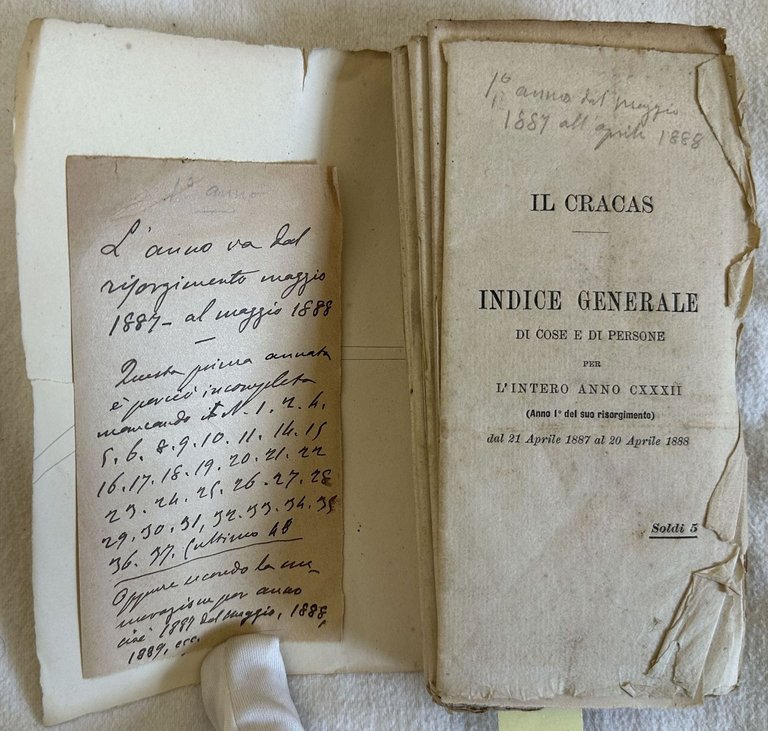 1° anno
L'anno va dal
risorgimento maggio
1887 - al maggio 1888
Questa prima annata
è perciò incompleta
mancando i N. 1. 2. 4.
5. 6. 8. 9. 10. 11. 14. 15
16. 17. 18. 19. 20. 21. 22
23. 24. 25. 26. 27. 28
29. 30. 31, 32. 33. 34. 35
36. 37. (ultimo 48
Oppure secondo la nu-
merazione per anno
cioè 1887 dal maggio, 1888,
1889, ecc.
1° anno dal maggio
1887 all'aprile 1888
IL CRACAS
INDICE GENERALE
DI COSE E DI PERSONE
PER
L'INTERO ANNO CXXXII
(Anno I° del suo risorgimento)
dal 21 Aprile 1887 al 20 Aprile 1888
Soldi 5